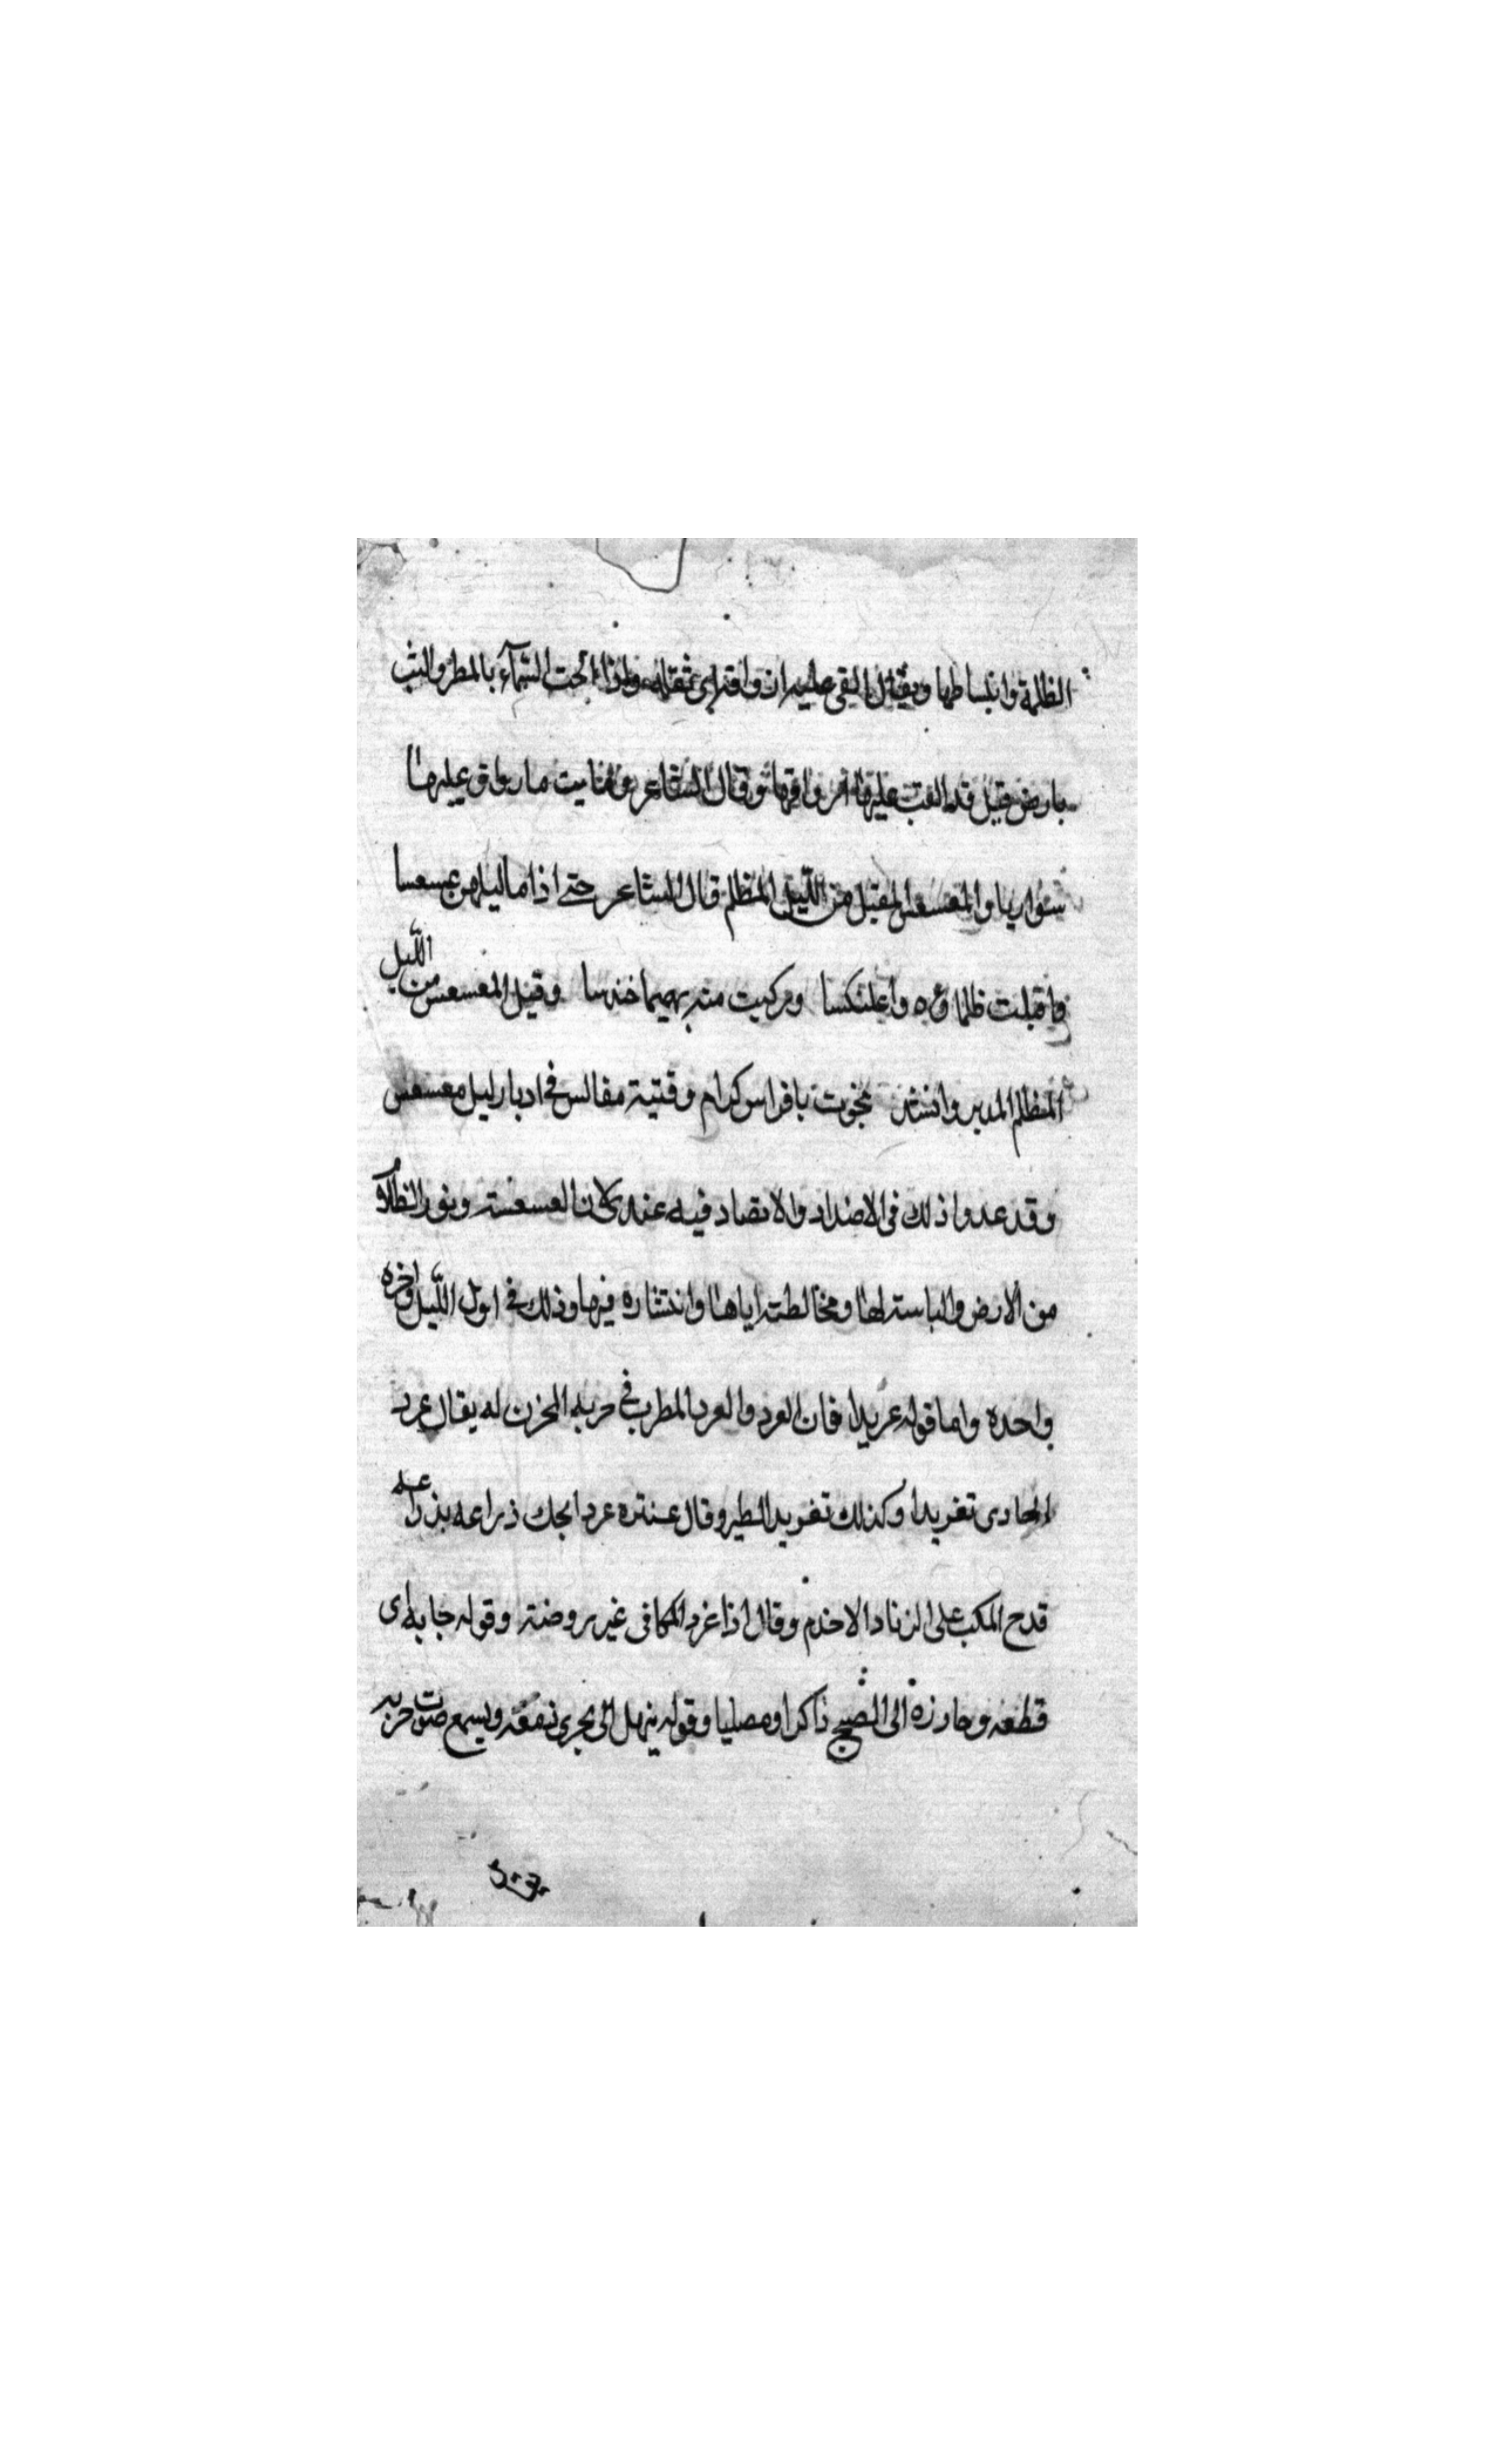 الظلمة وانبساطها ويقال القى عليه ارواقه اي ثقله واذا الحت السمآء بالمطر والثبت
بارض قيل قد القت عليها ارواقها وقال الشاعر وباتت بارواق عليها
سواريا والمعسعس المقبل من الليل المظلم قال الشاعر حتى اذا ما ليلهن عسعسا
واقبلت ظلماوه واعلنكسا وركبت منه بهيما خندسا وقيل المعسعس من الليل
المظلم المدبر وانشد نجوت بافراس كرام وفتية مفالس في ادبار ليل معسعس
وقد عدوا ذلك في الاضداد والاتضاد فيه عندي لان العسعسة ونور الظلام
من الارض والباسته لها ومخالطته اياها وانتشاره فيها وذلك في اول الليل واخره
واحدة واما قوله عريدا فان العرد والعرد المطرب في حربه المحزن له يقال عرد
الحادى تغريدا وكذلك تغريد الطير وقال عنتره عردا يحك ذراعه بذراعه
قدح المكب على الزناد الاخدم وقال اذا غرد المكا فى غير روضة وقوله جابه اى
قطعه وجاوزه الى الصبح ذاكرا ومصليا وقوله ينهل اى يجرى دمعه ويسمع صوت حربه